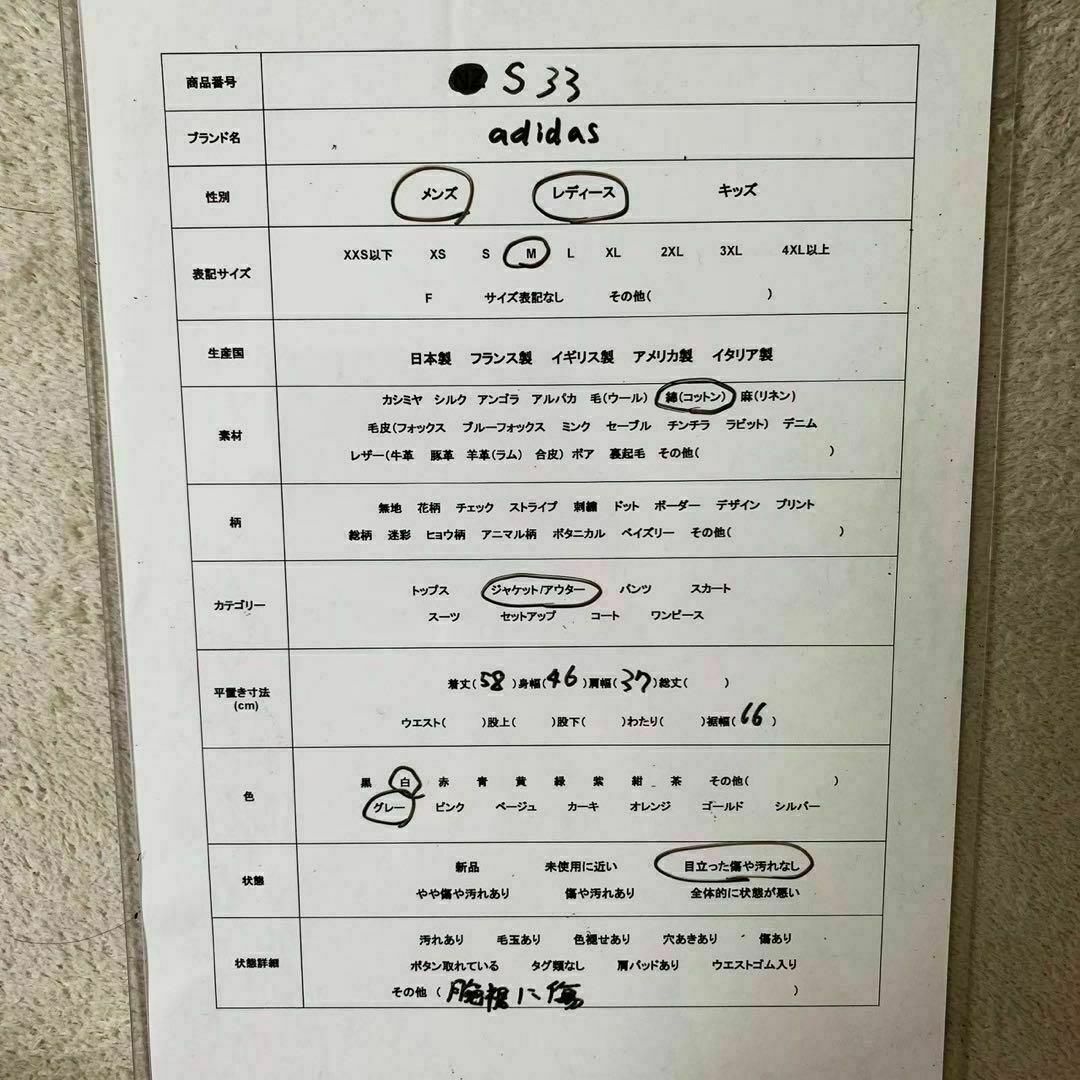 商品番号 S 33
ブランド名 adidas
性別 メンズ レディース キッズ
XXS以下 XS S M L XL 2XL 3XL 4XL以上
表記サイズ
F サイズ表記なし その他( )
生産国 日本製 フランス製 イギリス製 アメリカ製 イタリア製
カシミヤ シルク アンゴラ アルパカ 毛(ウール) 綿(コットン) 麻(リネン)
素材 毛皮(フォックス ブルーフォックス ミンク セーブル チンチラ ラビット) デニム
レザー(牛革 豚革 羊革(ラム) 合皮) ボア 裏起毛 その他( )
無地 花柄 チェック ストライプ 刺繍 ドット ボーダー デザイン プリント
柄
総柄 迷彩 ヒョウ柄 アニマル柄 ボタニカル ペイズリー その他( )
トップス ジャケット/アウター パンツ スカート
カテゴリー
スーツ セットアップ コート ワンピース
着丈(58)身幅(46)肩幅(37)総丈( )
平置き寸法
(cm)
ウエスト( )股上( )股下( )わたり( )裾幅(66)
黒 白 赤 青 黄 緑 紫 紺 茶 その他( )
色
グレー ピンク ベージュ カーキ オレンジ ゴールド シルバー
新品 未使用に近い 目立った傷や汚れなし
状態
やや傷や汚れあり 傷や汚れあり 全体的に状態が悪い
汚れあり 毛玉あり 色褪せあり 穴あきあり 傷あり
状態詳細 ボタン取れている タグ類なし 肩パッドあり ウエストゴム入り
その他 ( に傷 )